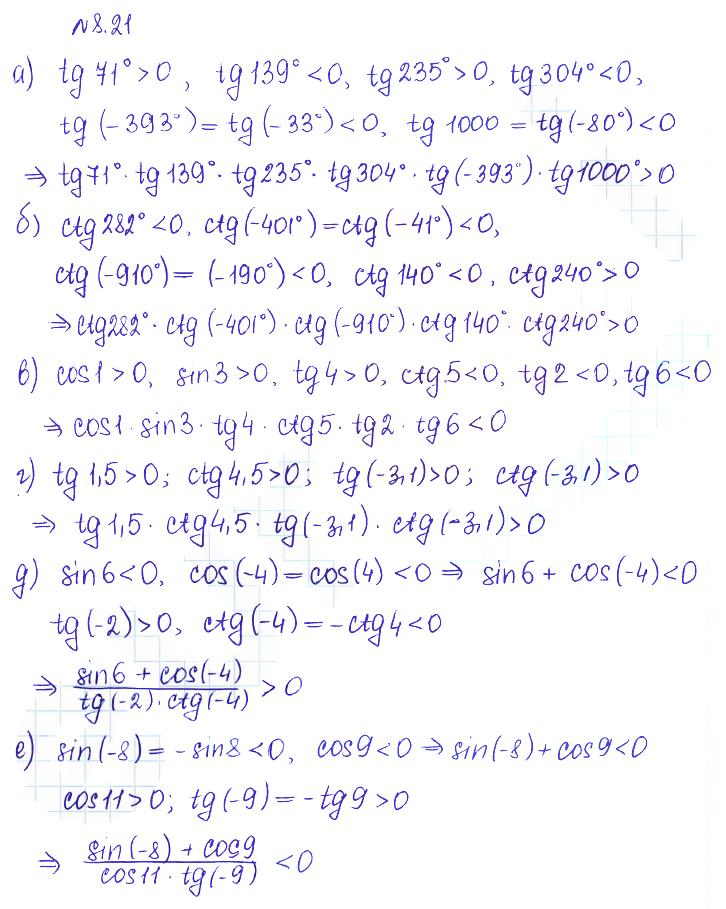 №8.21
а) tg 71° > 0, tg 139° < 0, tg 235° > 0, tg 304° < 0,
tg (-393°) = tg (-33°) < 0, tg 1000 = tg (-80°) < 0
⇒ tg 71° · tg 139° · tg 235° · tg 304° · tg (-393°) · tg 1000° > 0
б) ctg 282° < 0, ctg (-401°) = ctg (-41°) < 0,
ctg (-910°) = (-190°) < 0, ctg 140° < 0, ctg 240° > 0
⇒ ctg 282° · ctg (-401°) · ctg (-910°) · ctg 140° · ctg 240° > 0
в) cos 1 > 0, sin 3 > 0, tg 4 > 0, ctg 5 < 0, tg 2 < 0, tg 6 < 0
⇒ cos 1 · sin 3 · tg 4 · ctg 5 · tg 2 · tg 6 < 0
г) tg 1,5 > 0; ctg 4,5 > 0; tg (-3,1) > 0; ctg (-3,1) > 0
⇒ tg 1,5 · ctg 4,5 · tg (-3,1) · ctg (-3,1) > 0
д) sin 6 < 0, cos (-4) = cos (4) < 0 ⇒ sin 6 + cos (-4) < 0
tg (-2) > 0, ctg (-4) = - ctg 4 < 0
⇒ (sin 6 + cos (-4)) / (tg (-2) · ctg (-4)) > 0
е) sin (-8) = - sin 8 < 0, cos 9 < 0 ⇒ sin (-8) + cos 9 < 0
cos 11 > 0; tg (-9) = - tg 9 > 0
⇒ (sin (-8) + cos 9) / (cos 11 · tg (-9)) < 0